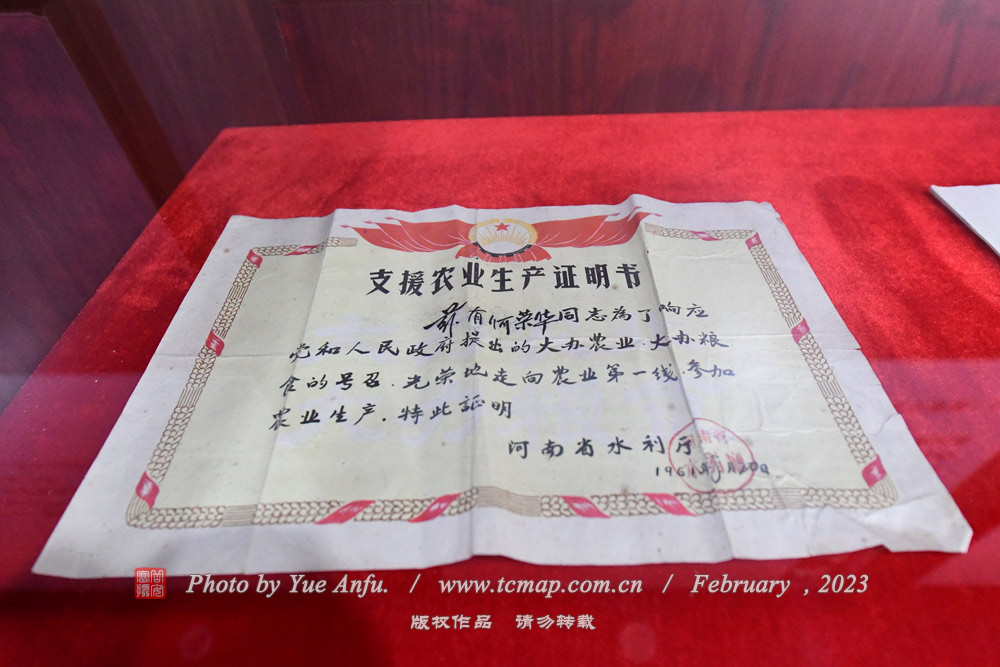 支援农业生产证明书
兹有何荣华同志為了响应
党和人民政府提出的大办农业.大办粮
食的号召.光荣地走向农业第一线.参加
农业生产.特此証明
河南省水利厅
1961年
Photo by Yue Anfu. / www.tcmap.com.cn / February , 2023
版权作品 请勿转载